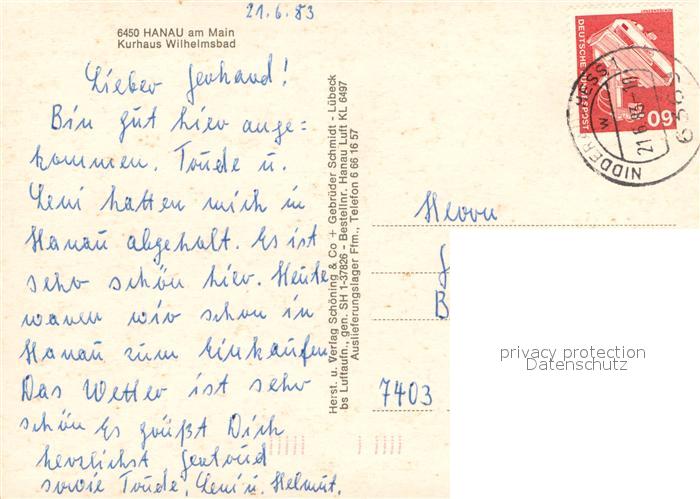 21.6.83
6450 HANAU am Main
Kurhaus Wilhelmsbad
Lieber Gerhard!
Bin gut hier ange=
kommen. Traude u.
Leni hatten mich in
Hanau abgeholt. Es ist
sehr schön hier. Heute
waren wir schon in
Hanau zum Einkaufen
Das Wetter ist sehr
schön Es grüßt Dich
herzlichst Gertrud
sowie Traude, Leni u. Helmut.
Herst. u. Verlag Schöning & Co + Gebrüder Schmidt - Lübeck
bs Luftaufn., gen. SH 1-37826 - Bestellnr. Hanau Luft KL 6497
Auslieferungslager Ffm., Telefon 6 66 16 57
DEUTSCHE BUNDESPOST
60
21.6.83
Herrn
G
B
7403
privacy protection
Datenschutz